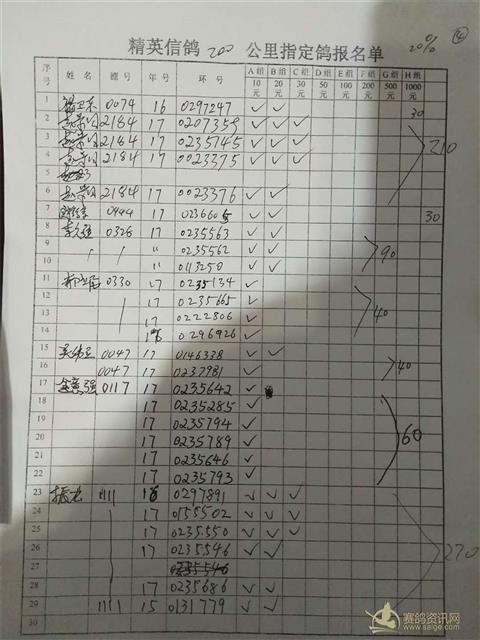 精英信鸽 200 公里指定鸽报名单 20% ④
序号 姓名 棚号 年号 环号 A组10元 B组20元 C组30元 D组50元 E组100元 F组200元 G组500元 H组1000元
1 0074 16 0297247 ✓ ✓ 30
2 2184 17 0207359 ✓ ✓ ✓
3 2184 17 0235745 ✓ ✓ ✓
4 2184 17 0023375 ✓ ✓ ✓ 210
5
6 2184 17 0023376 ✓ ✓
7 17 023660 ✓ ✓ 30
8 0328 17 0235563 ✓ ✓
9 〃 0235562 ✓ ✓ 90
10 〃 0113250 ✓ ✓
11 0330 17 0235134 ✓
12 17 0235665 ✓
13 17 0222806 ✓ 40
14 0296926 ✓
15 0047 17 0146338 ✓ ✓
16 0047 17 0237981 ✓ 40
17 0117 17 0235642 ✓
18 17 0235285 ✓
19 17 0235794 ✓
20 17 0235789 ✓ 60
21 17 0235646 ✓
22 17 0235793 ✓
23 1111 16 0297891 ✓ ✓ ✓
24 17 0155502 ✓ ✓ ✓
25 17 0235550 ✓ ✓ ✓
26 17 0235546 ✓ ✓ 270
27
28 17 0235686 ✓ ✓
29 1111 15 0131779 ✓ ✓
30
赛鸽资讯网
www.saige.com